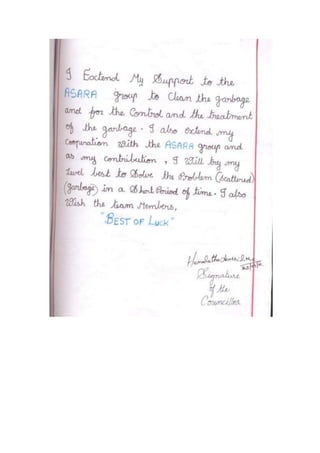 I Extend My Support to the
ASARA group to clean the garbage
and for the control and the treatment
of the garbage. I also extend my
cooperation with the ASARA group and
as my contribution, I will try my
level best to Solve the Problem (scattered)
(garbage) in a Short Period of time. I also
Wish the team Members.
"BEST OF LUCK"
Signature
of the
Councillor